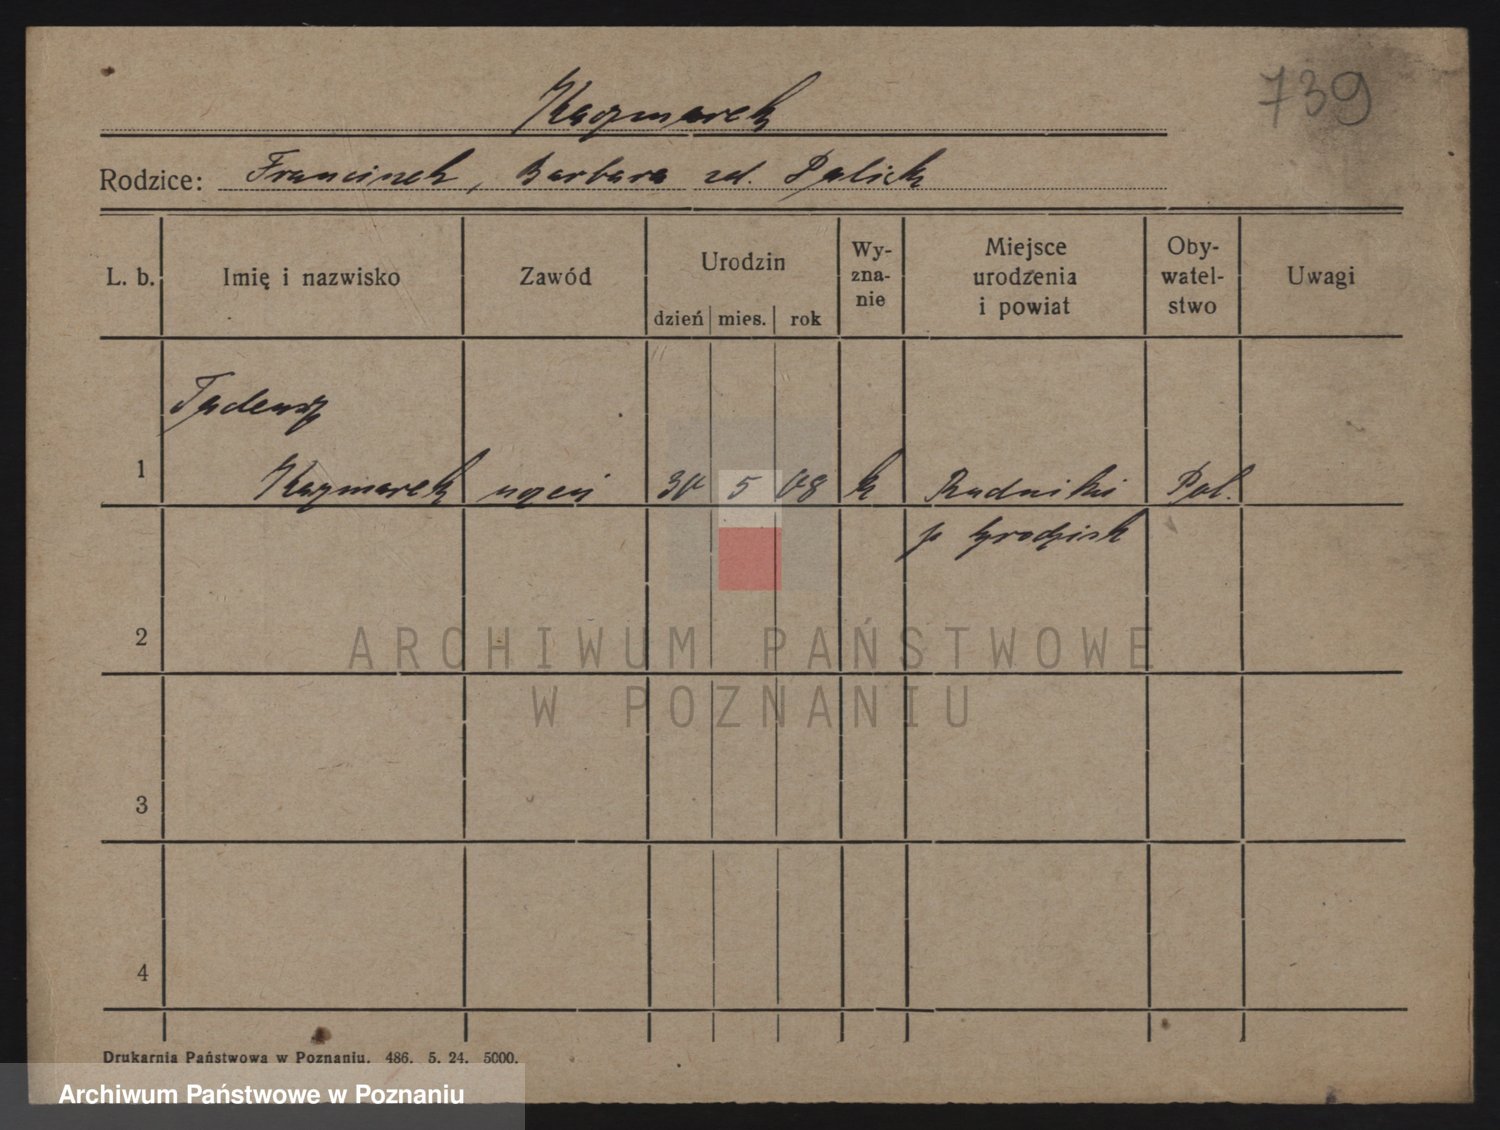 739
Kaczmarek
Rodzice: Franciszek, Barbara zd. Palick
L. b.
Imię i nazwisko
Zawód
Urodzin
dzień mies. rok
Wy-
zna-
nie
Miejsce
urodzenia
i powiat
Oby-
watel-
stwo
Uwagi
Tadeusz
1 Kaczmarek uczeń 30 5 08 k Rudniki Pol.
p Grodzisk
2
ARCHIWUM PAŃSTWOWE
W POZNANIU
3
4
Drukarnia Państwowa w Poznaniu. 486. 5. 24. 5000.
Archiwum Państwowe w Poznaniu